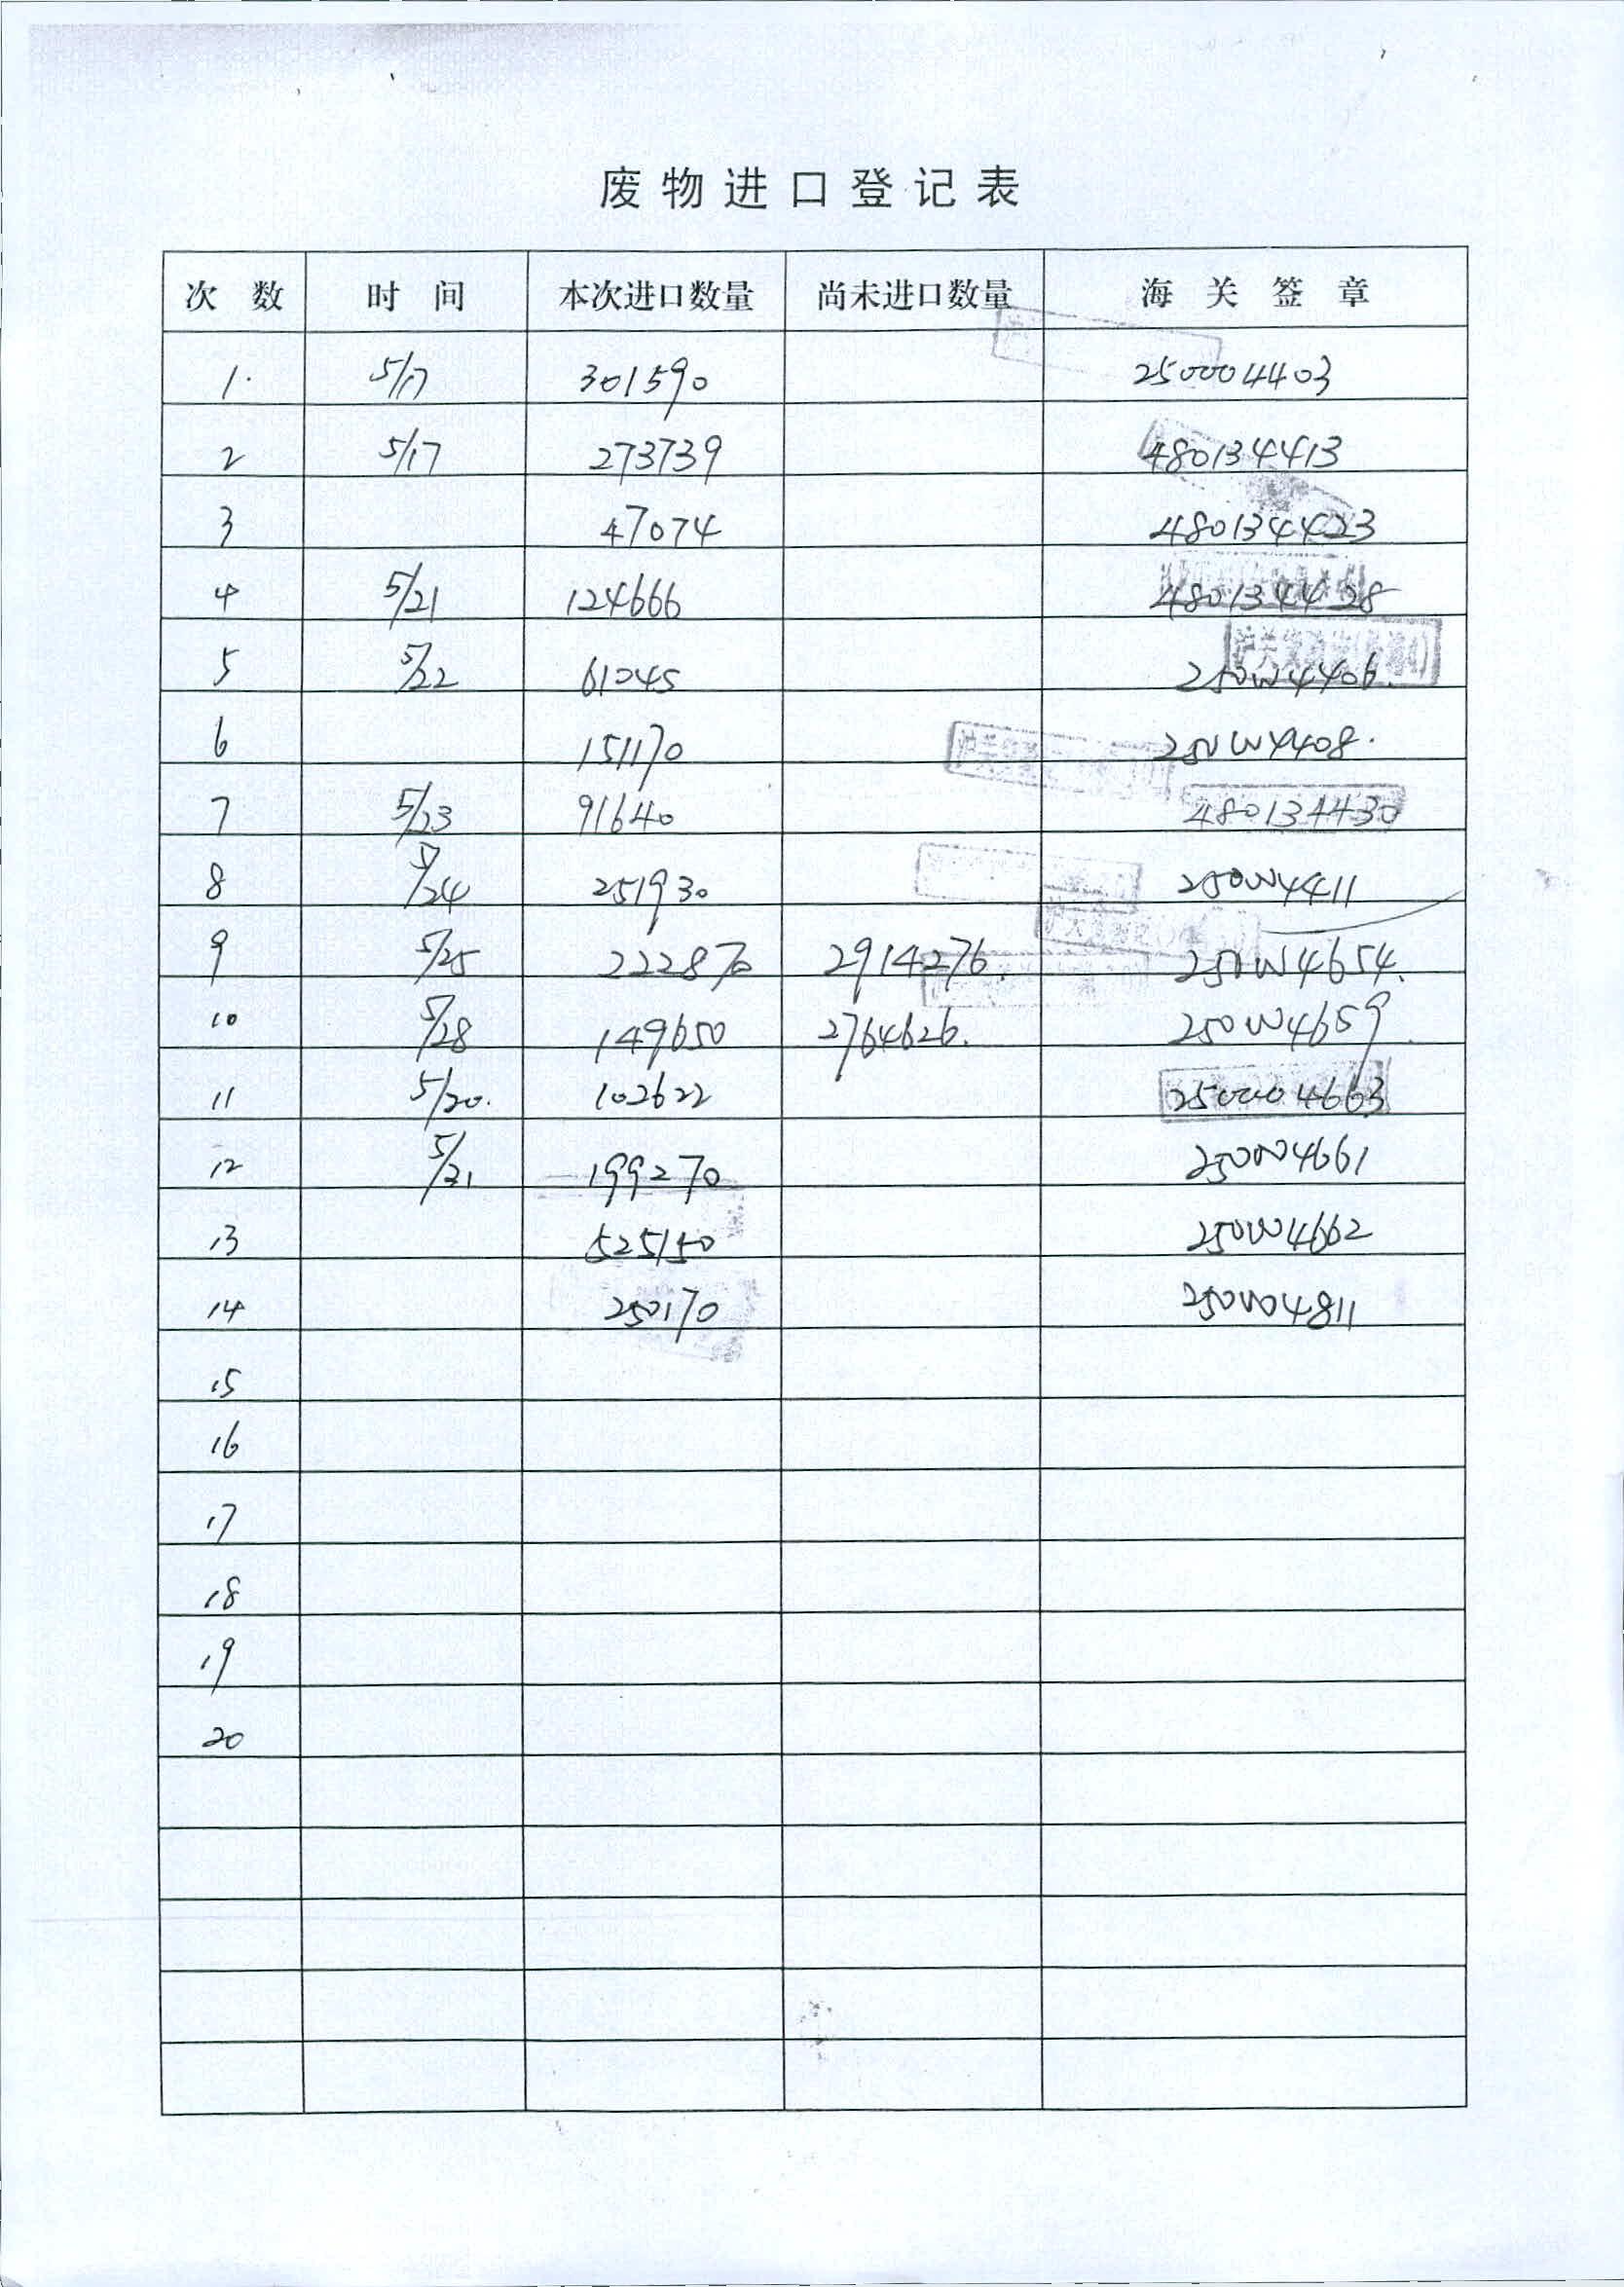 废物进口登记表
次数 时间 本次进口数量 尚未进口数量 海关签章
1. 5/17 301590 250004403
2 5/17 273739 480134413
3 47074 480134423
4 5/21 124666 480134428
5 5/22 61045 250004406.
6 151170 250004408.
7 5/23 91640 480134430
8 5/24 251930 250004411
9 5/25 222870 2914276. 250004654.
10 5/28 149650 2764626. 250004659.
11 5/30. 102622 250004663
12 5/31 199270 250004661
13 525150 250004662
14 250170 250004811
15
16
17
18
19
20